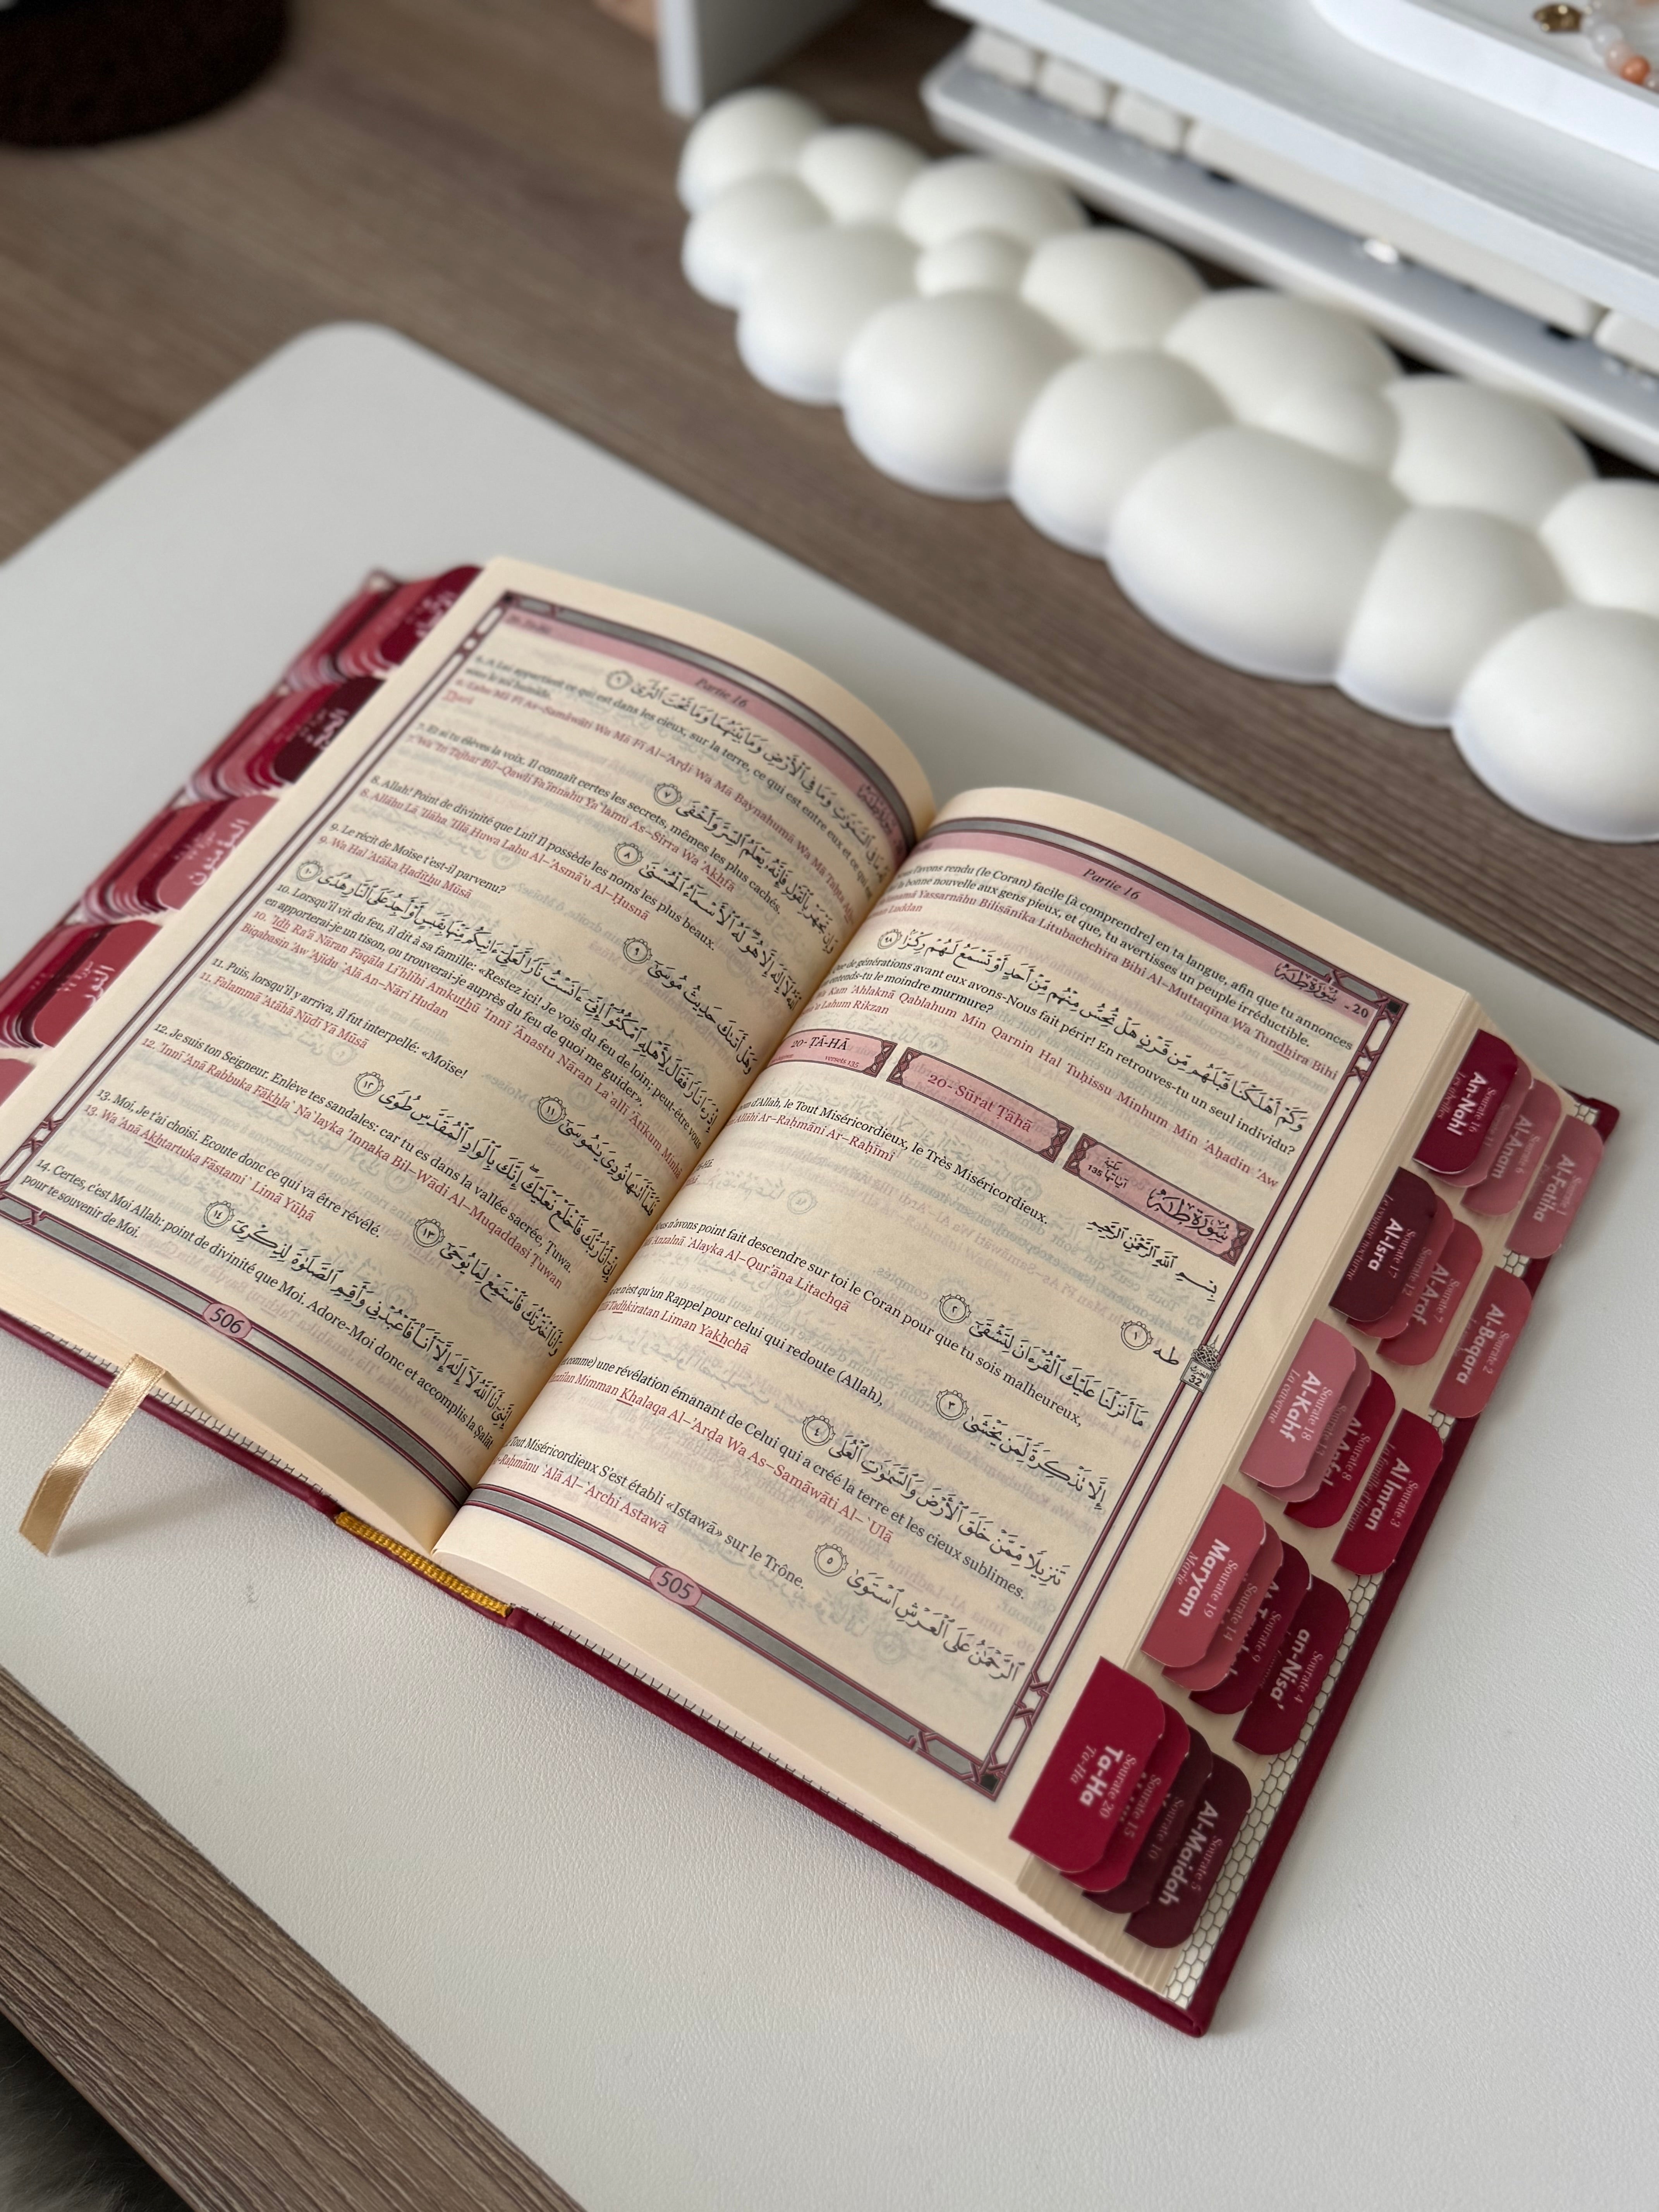 Partie 16
20 - سُورَةُ طه
l'avons rendu (le Coran) facile [à comprendre] en ta langue, afin que tu annonces
bonne nouvelle aux gens pieux, et que, tu avertisses un peuple irréductible.
Yassarnāhu Bilisānika Litubachchira Bihi Al-Muttaqīna Wa Tundhira Bihi
Luddan
وَكَمْ أَهْلَكْنَا قَبْلَهُم مِّن قَرْنٍ هَلْ تُحِسُّ مِنْهُم مِّنْ أَحَدٍ أَوْ تَسْمَعُ لَهُمْ رِكْزًا ٩٨
de générations avant eux avons-Nous fait périr! En retrouves-tu un seul individu?
entends-tu le moindre murmure?
Kam 'Ahlaknā Qablahum Min Qarnin Hal Tuḥissu Minhum Min 'Aḥadin 'Aw
Lahum Rikzan
20- ṬĀ-HĀ
versets 135
20- Sūrat Ṭāhā
مكية
آياتها 135
سُورَةُ طه
بِسْمِ ٱللَّهِ ٱلرَّحْمَٰنِ ٱلرَّحِيمِ
d'Allah, le Tout Miséricordieux, le Très Miséricordieux.
Ar-Raḥmāni Ar-Raḥīmi
طه ١
مَآ أَنزَلْنَا عَلَيْكَ ٱلْقُرْءَانَ لِتَشْقَىٰٓ ٢
n'avons point fait descendre sur toi le Coran pour que tu sois malheureux,
Anzalnā 'Alayka Al-Qur'āna Litachqá
إِلَّا تَذْكِرَةً لِّمَن يَخْشَىٰ ٣
n'est qu'un Rappel pour celui qui redoute (Allah),
Tadhkiratan Liman Yakhchá
تَنزِيلًا مِّمَّنْ خَلَقَ ٱلْأَرْضَ وَٱلسَّمَٰوَٰتِ ٱلْعُلَى ٤
comme) une révélation émanant de Celui qui a créé la terre et les cieux sublimes.
Mimman Khalaqa Al-'Arḍa Wa As-Samāwāti Al-`Ulá
ٱلرَّحْمَٰنُ عَلَى ٱلْعَرْشِ ٱسْتَوَىٰ ٥
Tout Miséricordieux S'est établi «Istawā» sur le Trône.
`Alá Al-`Archi Astawá
505
32
Partie 16
6. A Lui appartient ce qui est dans les cieux, sur la terre, ce qui est entre eux et ce qui
sous le sol humide.
6. Lahu Mā Fī As-Samāwāti Wa Mā Fī Al-'Arḍi Wa Mā Baynahumā Wa Mā Taḥta
وَإِن تَجْهَرْ بِٱلْقَوْلِ فَإِنَّهُۥ يَعْلَمُ ٱلسِّرَّ وَأَخْفَى ٧
7. Et si tu élèves la voix, Il connaît certes les secrets, mêmes les plus cachés.
7. Wa 'In Tajhar Bil-Qawli Fa'innahu Ya`lamu As-Sirra Wa 'Akhfá
ٱللَّهُ لَآ إِلَٰهَ إِلَّا هُوَ لَهُ ٱلْأَسْمَآءُ ٱلْحُسْنَىٰ ٨
8. Allah! Point de divinité que Lui! Il possède les noms les plus beaux.
8. Allāhu Lā 'Ilāha 'Illā Huwa Lahu Al-'Asmā'u Al-Ḥusná
وَهَلْ أَتَىٰكَ حَدِيثُ مُوسَىٰٓ ٩
9. Le récit de Moïse t'est-il parvenu?
9. Wa Hal 'Atāka Ḥadīthu Mūsá
إِذْ رَءَا نَارًا فَقَالَ لِأَهْلِهِ ٱمْكُثُوٓا۟ إِنِّىٓ ءَانَسْتُ نَارًا لَّعَلِّىٓ ءَاتِيكُم مِّنْهَا بِقَبَسٍ أَوْ أَجِدُ عَلَى ٱلنَّارِ هُدًى ١٠
10. Lorsqu'il vit du feu, il dit à sa famille: «Restez ici! Je vois du feu de loin; peut-être vous
en apporterai-je un tison, ou trouverai-je auprès du feu de quoi me guider».
10. 'Idh Ra'á Nāran Faqāla Li'hlihi Amkuthū 'Innī 'Ānastu Nāran La`allī 'Ātīkum Minhā
Biqabasin 'Aw 'Ajidu `Alá An-Nāri Hudan
فَلَمَّآ أَتَىٰهَا نُودِىَ يَٰمُوسَىٰٓ ١١
11. Puis, lorsqu'il y arriva, il fut interpellé: «Moïse!
11. Falammā 'Atāhā Nūdī Yā Mūsá
إِنِّىٓ أَنَا۠ رَبُّكَ فَٱخْلَعْ نَعْلَيْكَ إِنَّكَ بِٱلْوَادِ ٱلْمُقَدَّسِ طُوًى ١٢
12. Je suis ton Seigneur. Enlève tes sandales: car tu es dans la vallée sacrée, Tuwa.
12. 'Innī 'Anā Rabbuka Fākhla` Na`layka 'Innaka Bil-Wādi Al-Muqaddasi Ṭuwan
وَأَنَا ٱخْتَرْتُكَ فَٱسْتَمِعْ لِمَا يُوحَىٰٓ ١٣
13. Moi, Je t'ai choisi. Ecoute donc ce qui va être révélé.
13. Wa 'Anā Akhtartuka Fāstami` Limā Yūḥá
إِنَّنِىٓ أَنَا ٱللَّهُ لَآ إِلَٰهَ إِلَّآ أَنَا۠ فَٱعْبُدْنِى وَأَقِمِ ٱلصَّلَوٰةَ لِذِكْرِىٓ ١٤
14. Certes, c'est Moi Allah: point de divinité que Moi. Adore-Moi donc et accomplis la Ṣalāt
pour te souvenir de Moi.
506
Sourate 16
An-Nahl
Les abeilles
Sourate 6
Al-Anam
Sourate 1
Al-Fatiha
Sourate 17
Al-Isra
Le voyage nocturne
Sourate 12
Sourate 7
Al-Araf
Sourate 2
Al-Baqara
Sourate 18
Al-Kahf
La caverne
Sourate 8
Al-Anfal
Sourate 3
Al Imran
Sourate 19
Maryam
Marie
Sourate 14
Sourate 9
Sourate 4
an-Nisa'
Sourate 20
Ta-Ha
Ta-Ha
Sourate 15
Sourate 10
Sourate 5
Al-Maidah